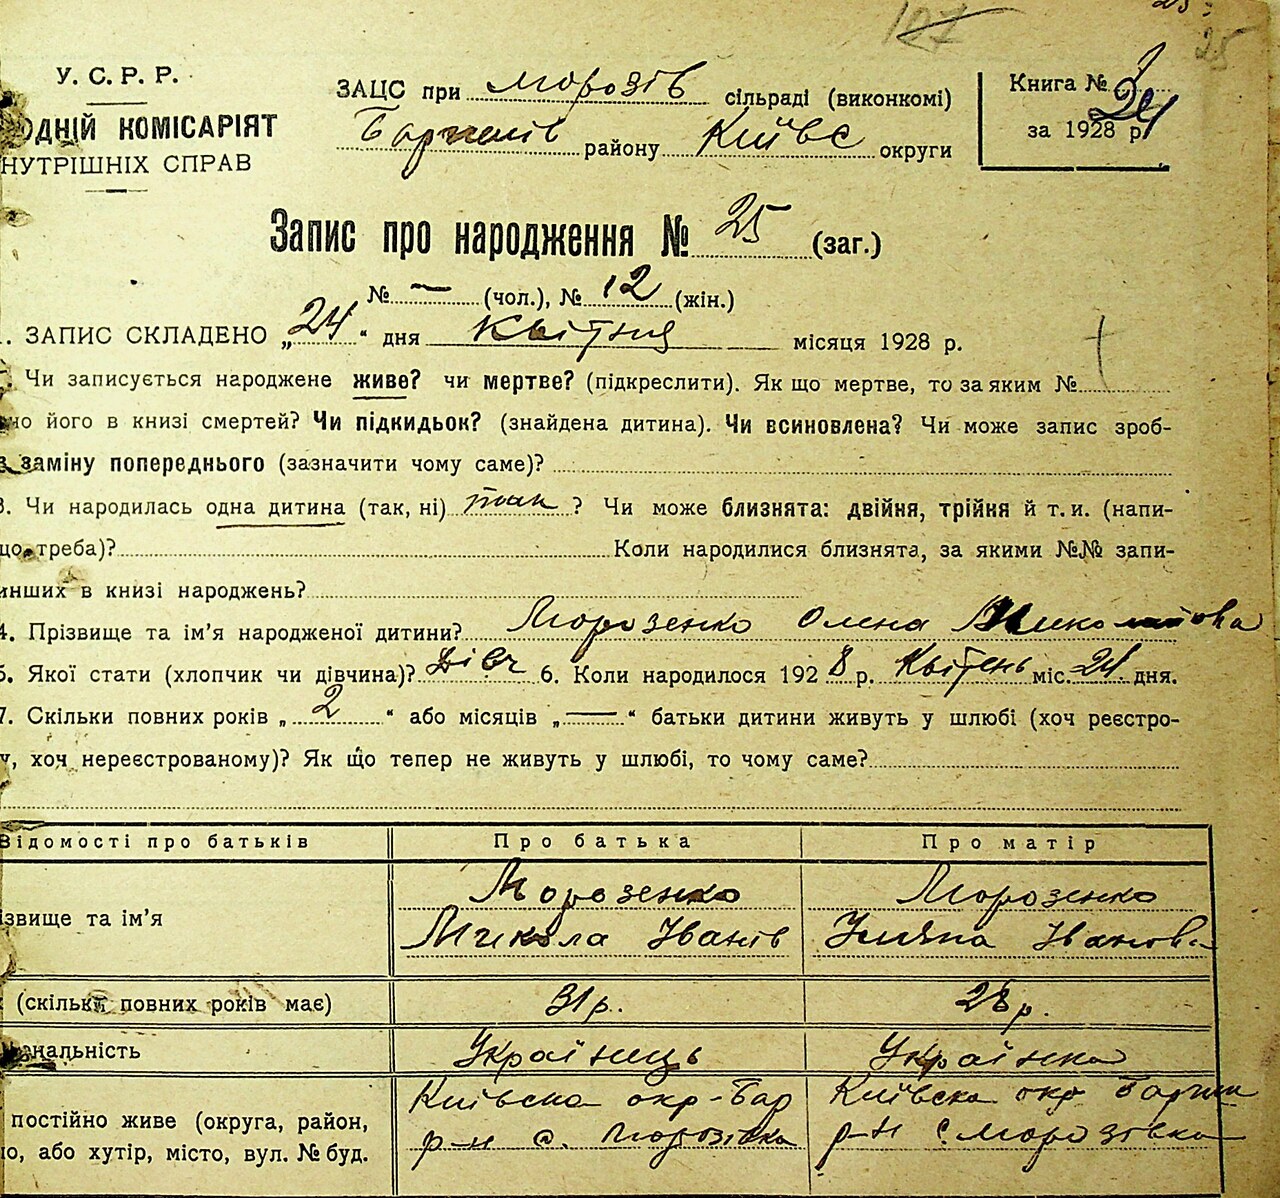 127
25
У. С. Р. Р.
ОДНІЙ КОМІСАРІЯТ
НУТРІШНІХ СПРАВ
ЗАЦС при Морозів сільраді (виконкомі)
району Київс округи
Книга №
за 1928 р.
Запис про народження № 25 (заг.)
№ — (чол.), № 12 (жін.)
1. ЗАПИС СКЛАДЕНО „24“ дня Квітня місяця 1928 р.
Чи записується народжене живе? чи мертве? (підкреслити). Як що мертве, то за яким №
но його в книзі смертей? Чи підкидьок? (знайдена дитина). Чи всиновлена? Чи може запис зроб-
в заміну попереднього (зазначити чому саме)?
3. Чи народилась одна дитина (так, ні) так ? Чи може близнята: двійня, трійня й т. и. (напи-
що треба)? Коли народилися близнята, за якими №№ запи-
инших в книзі народжень?
4. Прізвище та ім’я народженої дитини? Морозенко Олена Миколаїова
5. Якої стати (хлопчик чи дівчина)? дівч 6. Коли народилося 1928 р. Квітень міс. 24. дня.
7. Скільки повних років „2“ або місяців „—“ батьки дитини живуть у шлюбі (хоч реєстро-
у, хоч нереєстрованому)? Як що тепер не живуть у шлюбі, то чому саме?
Відомості про батьків Про батька Про матір
ізвище та ім’я Морозенко Морозенко
Микола Іванів Уляна Іванова
(скільки повних років має) 31 р. 28 р.
нальність Українець Українка
постійно живе (округа, район, Київська окр-Бар Київська окр Баришп
ло, або хутір, місто, вул. № буд. р-н с. Морозівка р-н с. Морозівка